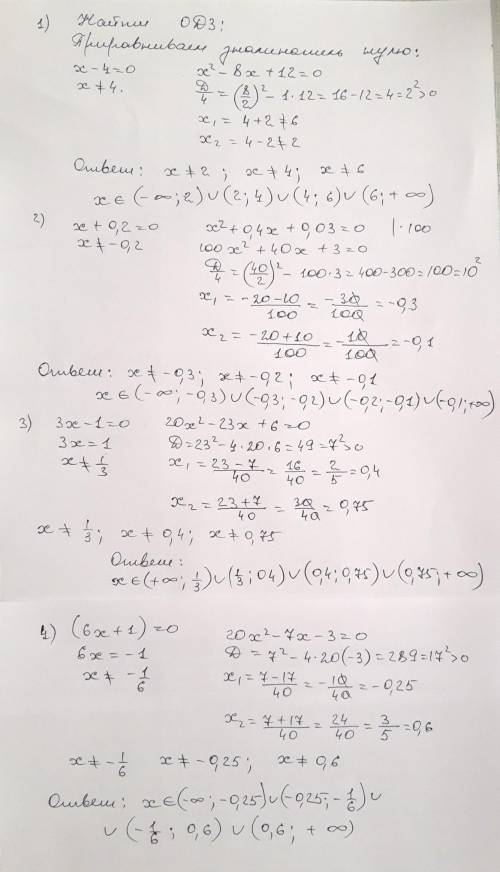 1) Найти ОДЗ:
Приравниваем знаменатель нулю:
x-4=0 x²-8x+12=0
x≠4. D/4=(8/2)²-1·12=16-12=4=2²>0
x₁=4+2≠6
x₂=4-2≠2
Ответ: x≠2; x≠4; x≠6
x∈(-∞;2)∪(2;4)∪(4;6)∪(6;+∞)
2) x+0,2=0 x²+0,4x+0,03=0 |·100
x≠-0,2 100x²+40x+3=0
D/4=(40/2)²-100·3=400-300=100=10²
x₁=(-20-10)/100=-30/100=-0,3
x₂=(-20+10)/100=-10/100=-0,1
Ответ: x≠-0,3; x≠-0,2; x≠-0,1
x∈(-∞;-0,3)∪(-0,3;-0,2)∪(-0,2;-0,1)∪(-0,1;+∞)
3) 3x-1=0 20x²-23x+6=0
3x=1 D=23²-4·20·6=49=7²>0
x≠1/3 x₁=(23-7)/40=16/40=2/5=0,4
x₂=(23+7)/40=30/40=0,75
x≠1/3; x≠0,4; x≠0,75
Ответ:
x∈(+∞;1/3)∪(1/3;04)∪(0,4;0,75)∪(0,75;+∞)
4) (6x+1)=0 20x²-7x-3=0
6x=-1 D=7²-4·20(-3)=289=17²>0
x≠-1/6 x₁=(7-17)/40=-10/40=-0,25
x₂=(7+17)/40=24/40=3/5=0,6
x≠-1/6 x≠-0,25; x≠0,6
Ответ: x∈(-∞;-0,25)∪(-0,25;-1/6)∪
∪(-1/6;0,6)∪(0,6;+∞)